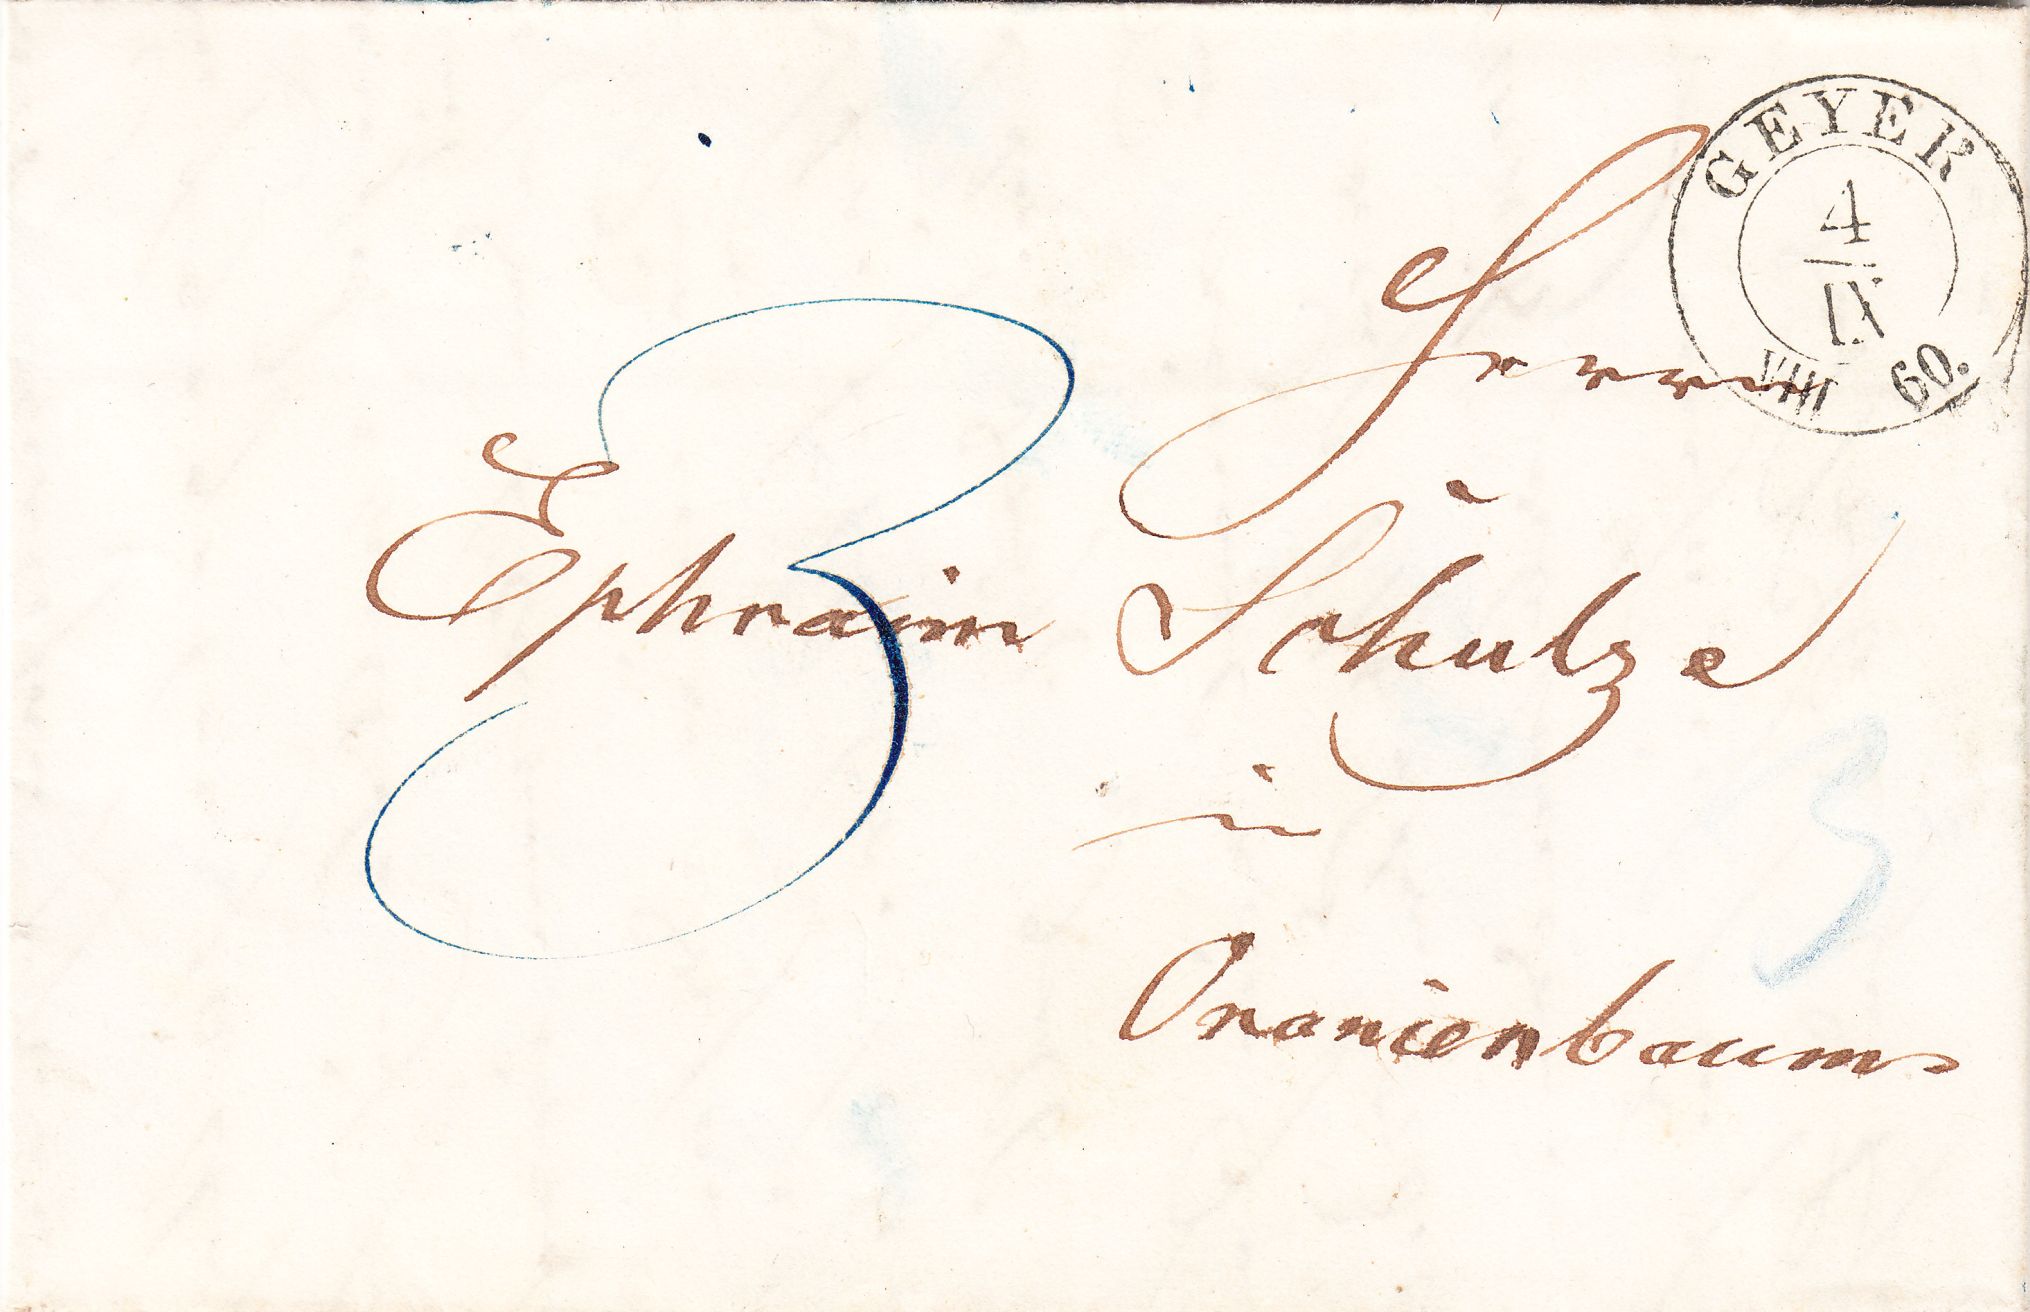 GEYER
4
IX
VIII 60.
Herrn
Ephraim Schulze
in
Oranienbaum
3
3